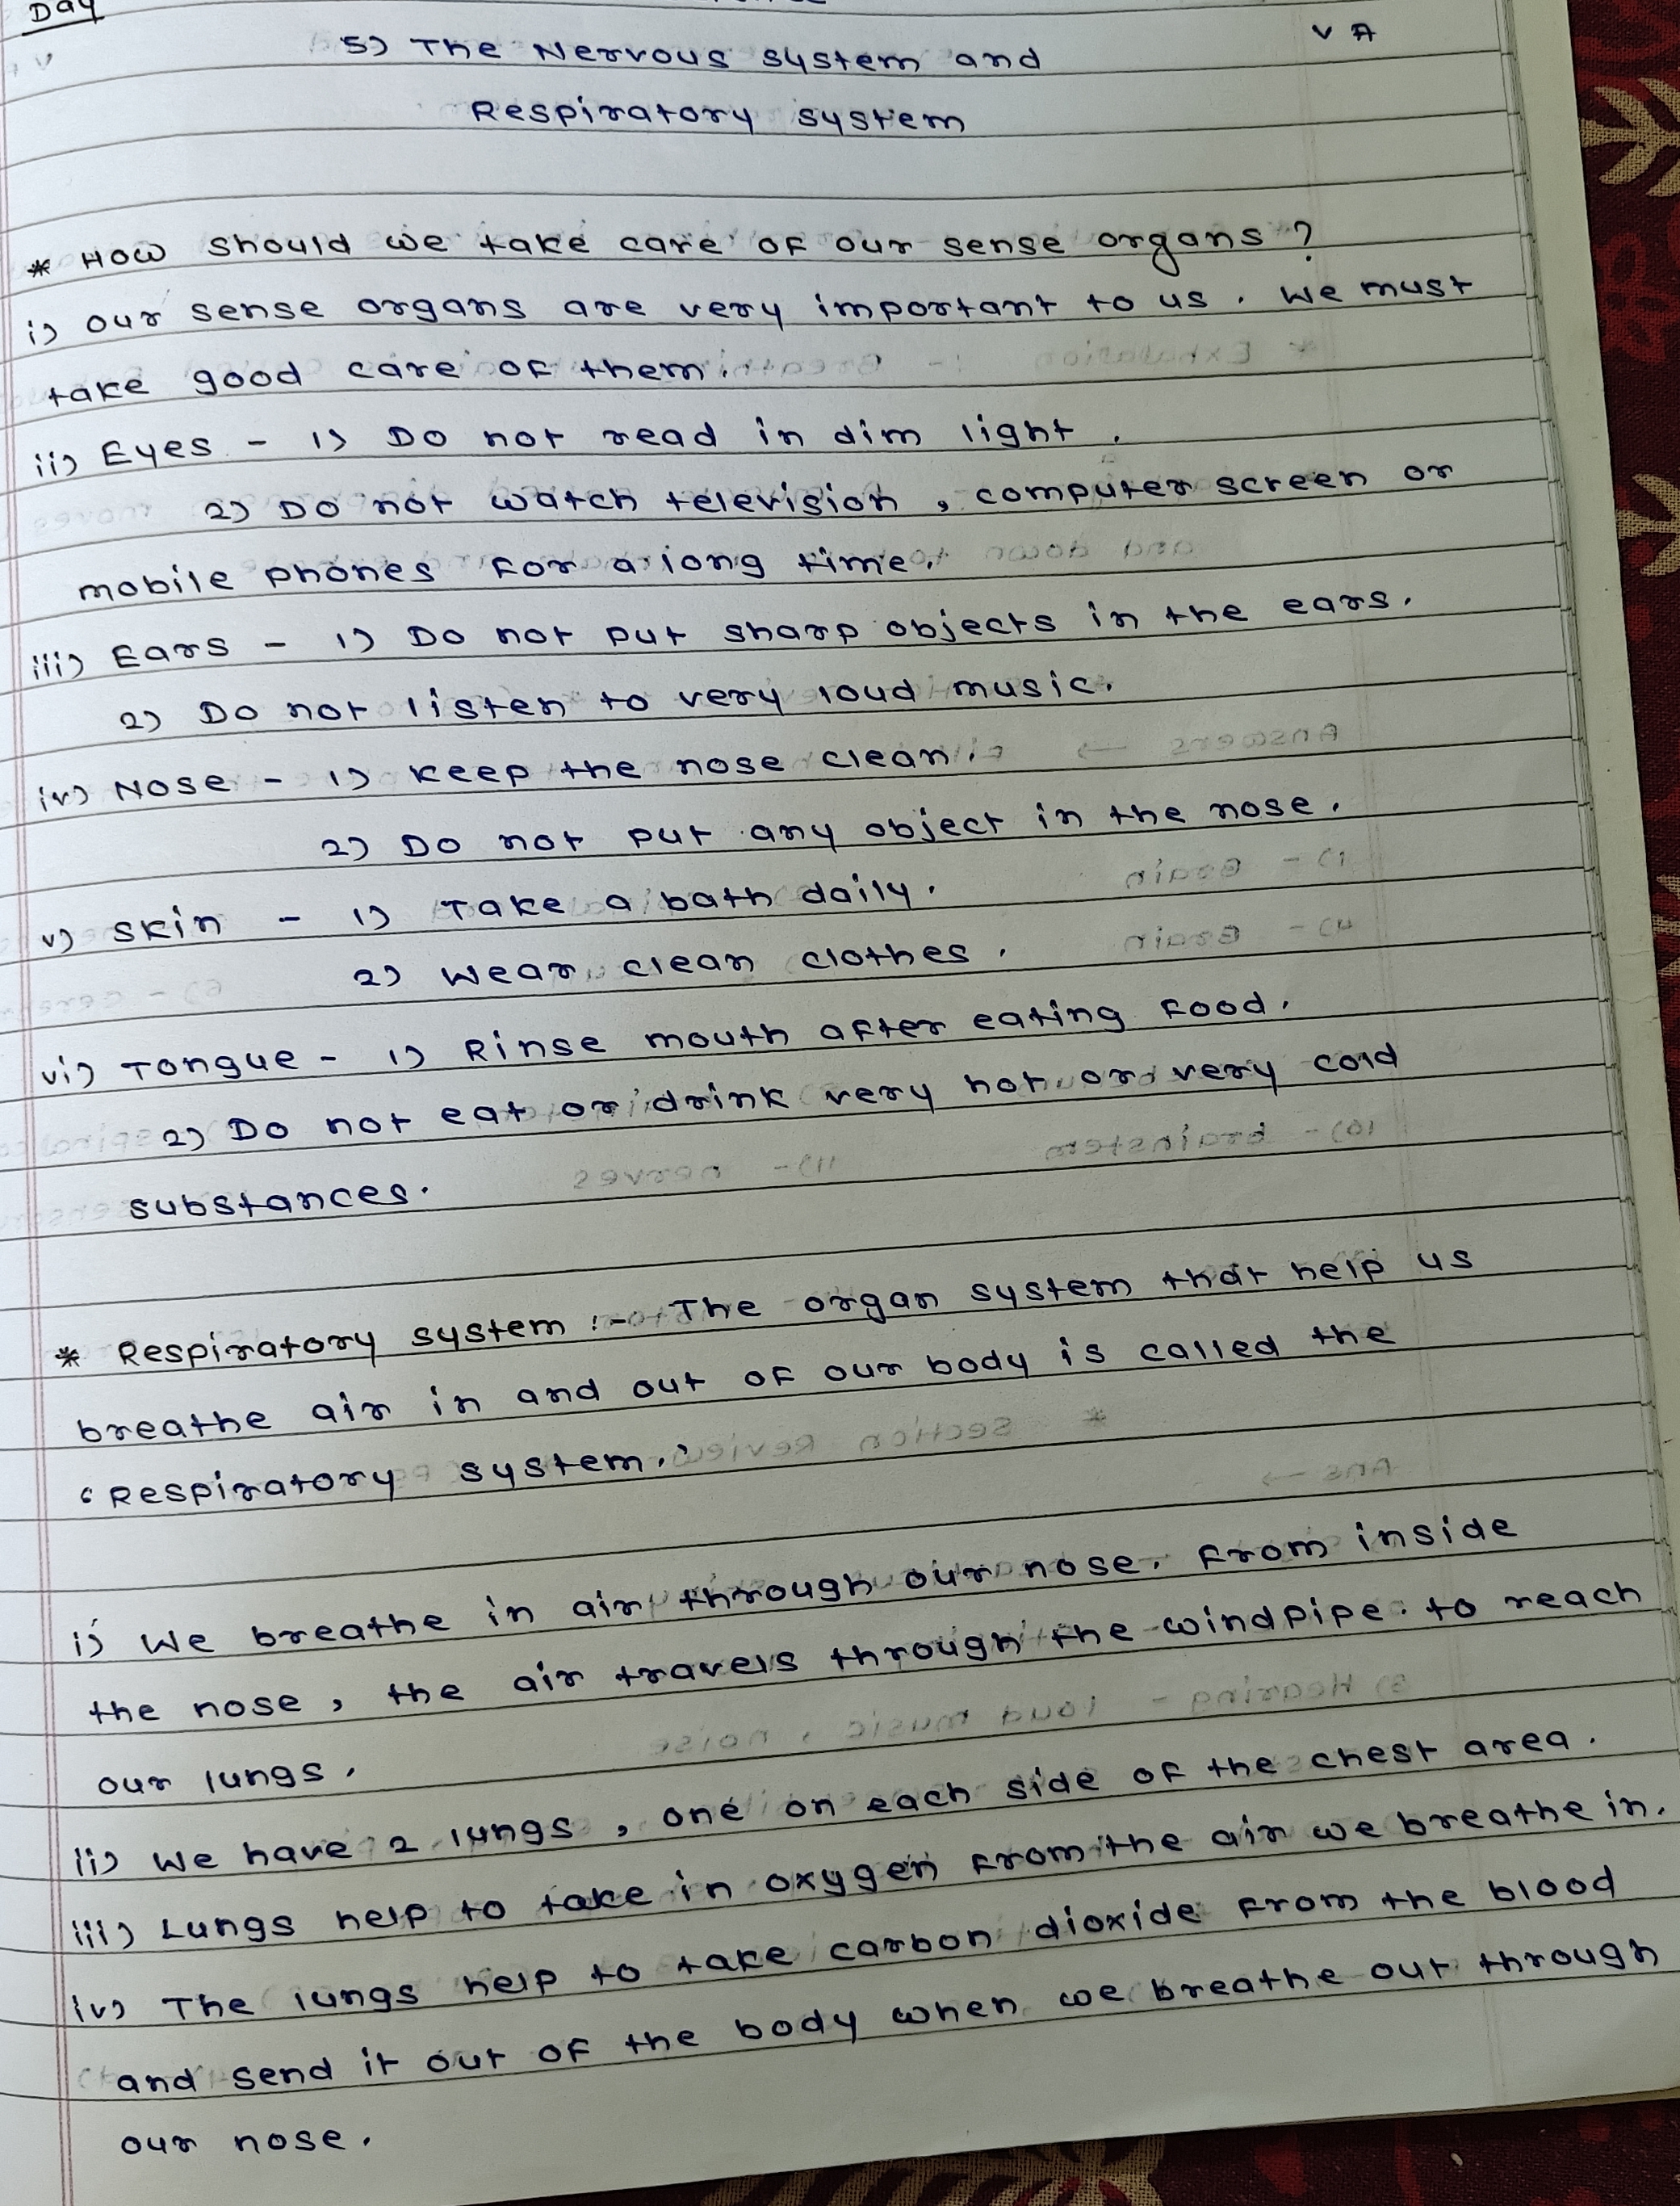 Day
V A
5) The Nervous system and
Respiratory system
* How should we take care of our sense organs ?
i) our sense organs are very important to us. We must
take good care of them.
ii) Eyes - 1) Do not read in dim light.
2) Do not watch television, computer screen or
mobile phones for a long time.
iii) Ears - 1) Do not put sharp objects in the ears.
2) Do not listen to very loud music.
iv) Nose - 1) Keep the nose clean.
2) Do not put any object in the nose.
v) skin - 1) Take a bath daily.
2) Wear clean clothes.
vi) Tongue - 1) Rinse mouth after eating food.
2) Do not eat or drink very hot or very cold
substances.
* Respiratory system :- The organ system that help us
breathe air in and out of our body is called the
'Respiratory system.'
i) We breathe in air through our nose. From inside
the nose, the air travels through the windpipe. to reach
our lungs.
ii) We have 2 lungs, one on each side of the chest area.
iii) Lungs help to take in oxygen from the air we breathe in.
iv) The lungs help to take carbon dioxide from the blood
and send it out of the body when we breathe out through
our nose.